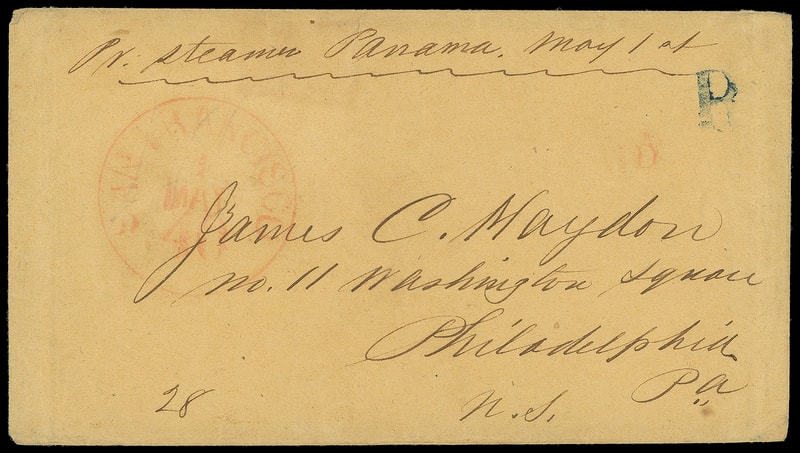 Pr. steamer Panama. May 1st
R
SAN FRANCISCO
1
MAY
James C. Haydon
no. 11 Washington Square
Philadelphia
Pa
28
U.S.